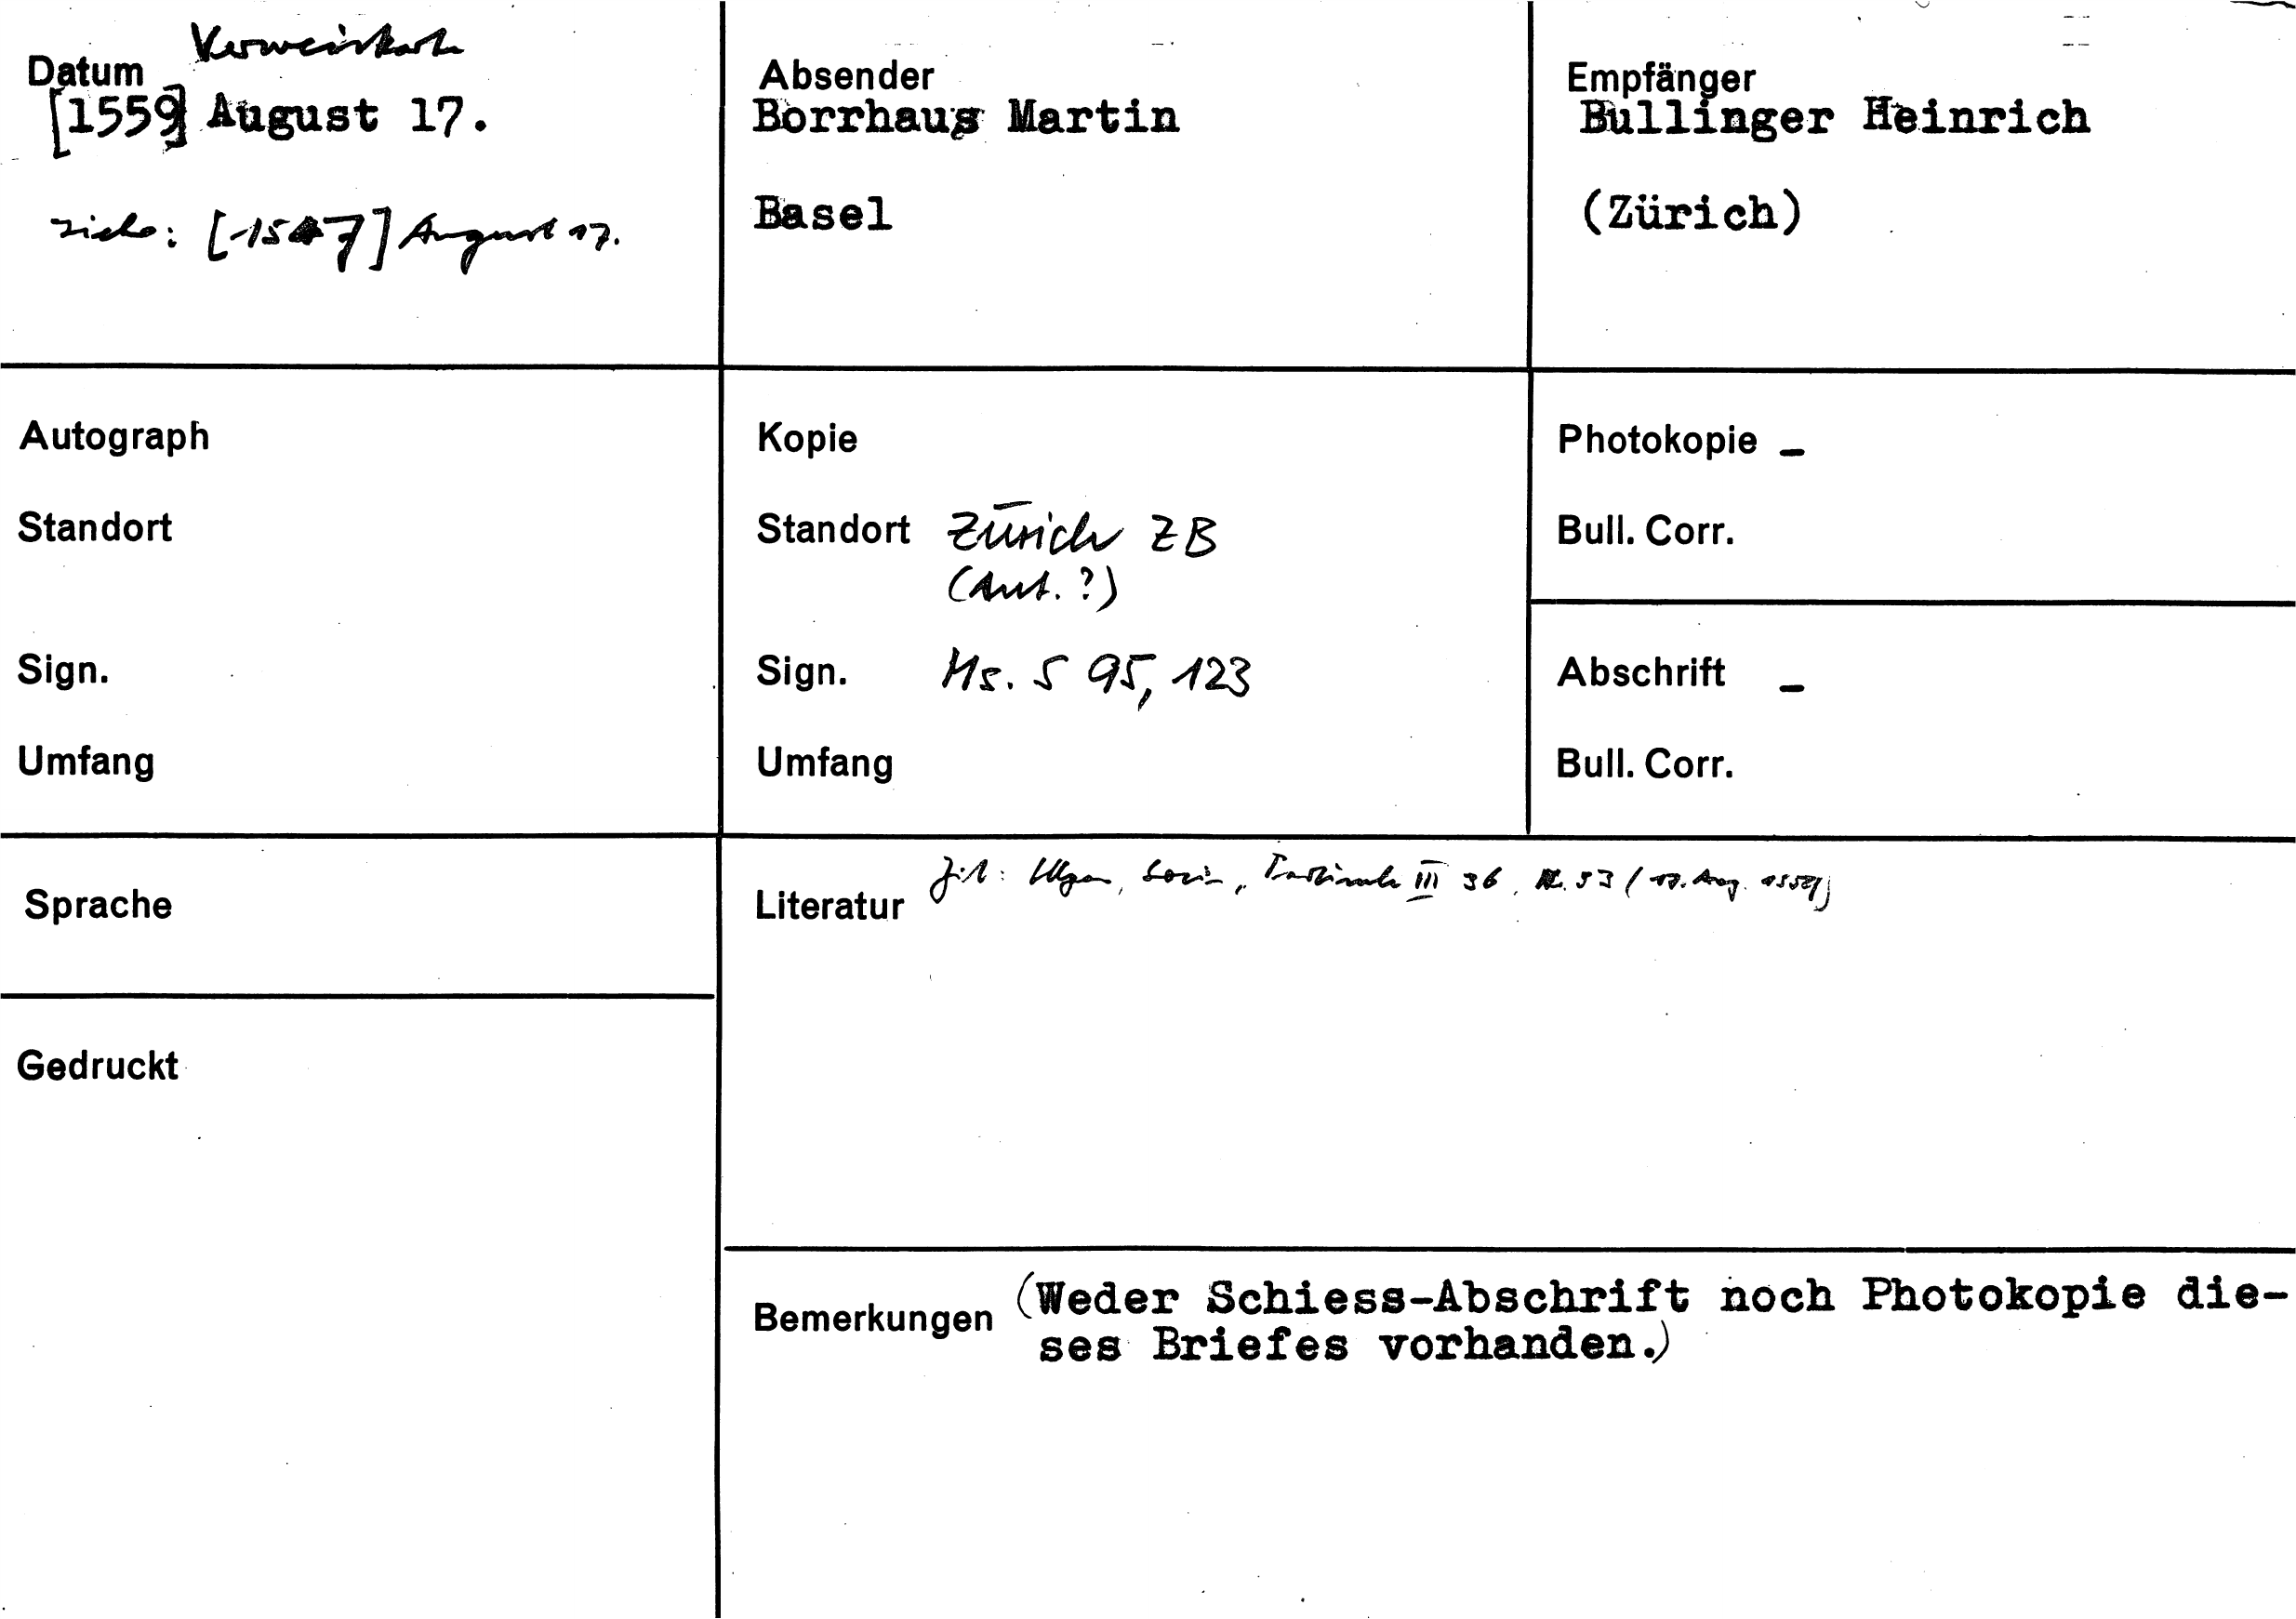 Verweiskarte
Datum
[1559] August 17.
siehe: [1547] August 17.
Absender
Borrhaus Martin
Basel
Empfänger
Bullinger Heinrich
(Zürich)
Autograph
Standort
Sign.
Umfang
Kopie
Standort Zürich ZB
(Aut.?)
Sign. Ms. S 95, 123
Umfang
Photokopie -
Bull. Corr.
Abschrift -
Bull. Corr.
Sprache
Gedruckt
Literatur III 36, 53 (17. Aug. 1559)
Bemerkungen (Weder Schiess-Abschrift noch Photokopie die-
ses Briefes vorhanden.)